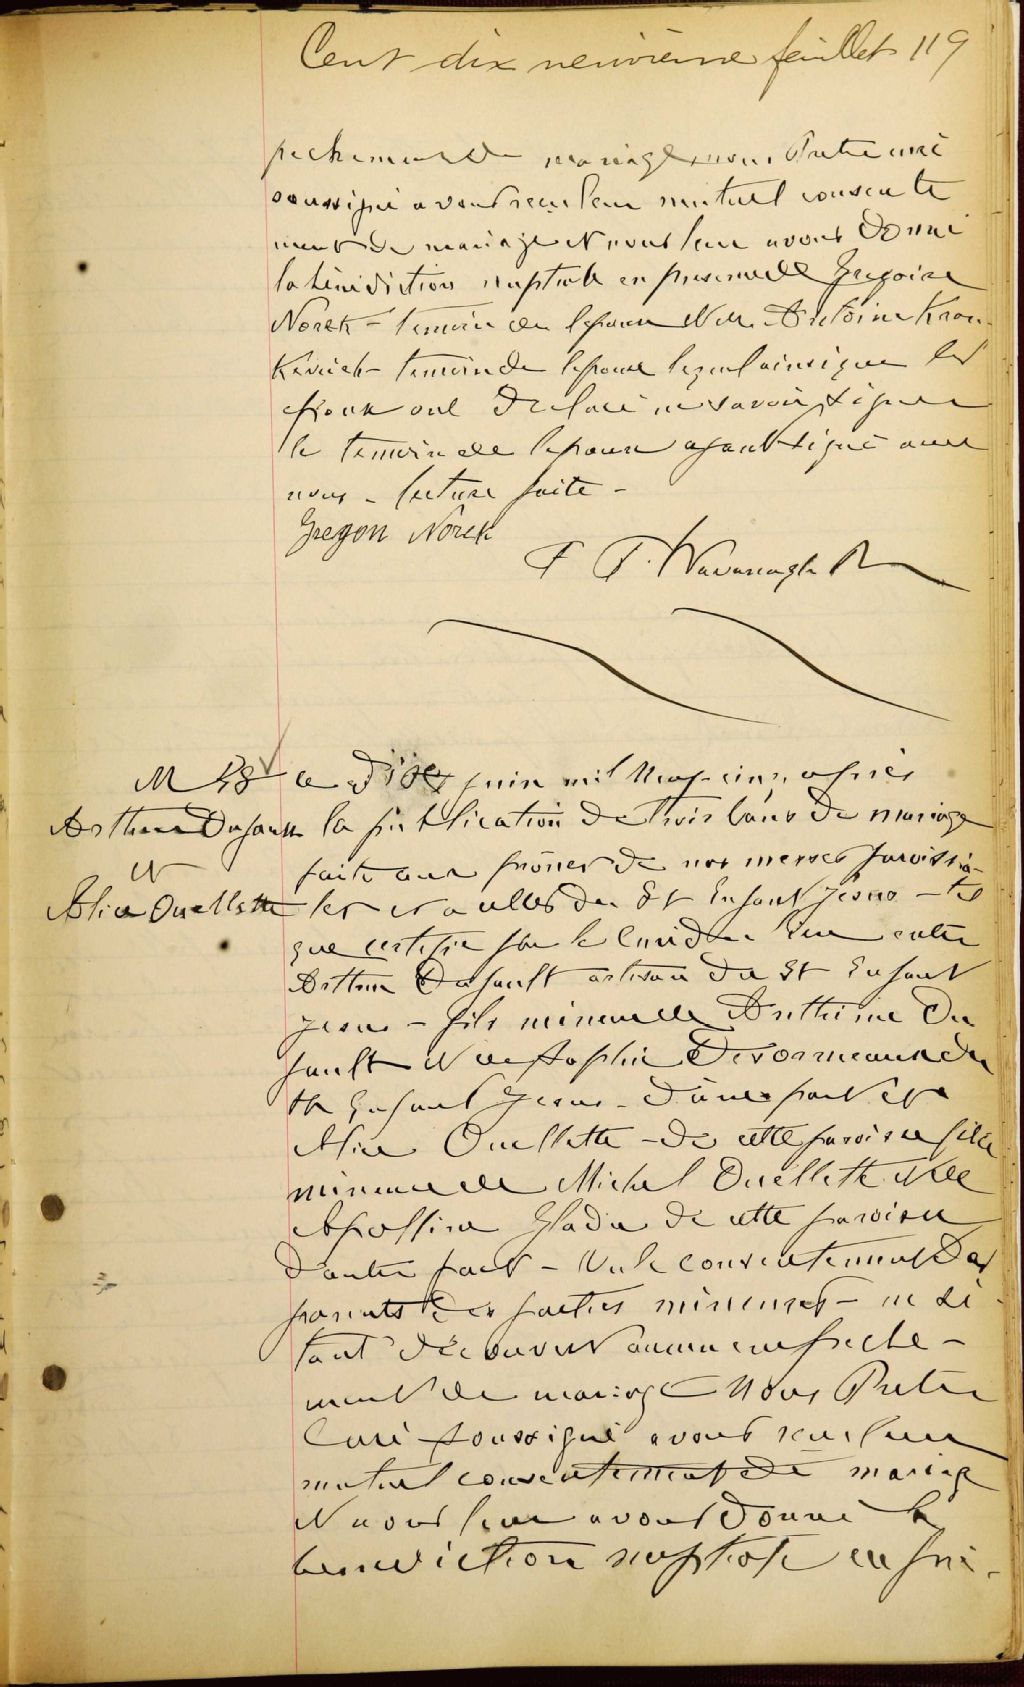 Cent dix neuvième feuillet 119
pechement de mariage nous Pretre curé
soussigné avons reçu leur mutuel consente
ment de mariage et nous leur avons donné
la bénédiction nuptiale en presence de Gregoire
Norek - temoin de lepoux et de Antoine Kran-
kevich - temoin de lepouse lequel ainsi que les
epoux ont declaré ne savoir signer
le temoin de lepoux ayant signé avec
nous - lecture faite -
Gregon Norek
F P. Kavanagh Ptr
M 58 Le dix juin mil neuf-cinq, après
Arthur Dufault la publication de trois bans de mariage
et faite aux prônes de nos messes paroissia-
Alice Ouellette les et a celles du St Enfant Jesus - tel
que certifié par le Curé du lieu entre
Arthur Dufault artisan du St Enfant
Jesus - fils mineur de Anthime Du
fault et de Sophie Desormeaux du
St Enfant Jesus - d'une part et
Alice Ouellette - de cette paroisse fille
mineure de Michel Ouellette et de
Apolline Gladu de cette paroisse
d'autre part - Vu le consentement des
parents des parties mineures - ne sé
tant découvert aucun empeche -
ment de mariage Nous Pretre
Curé soussigné avons reçu leur
mutuel consentement de mariage
et nous leur avons donné la
benediction nuptiale en pré-